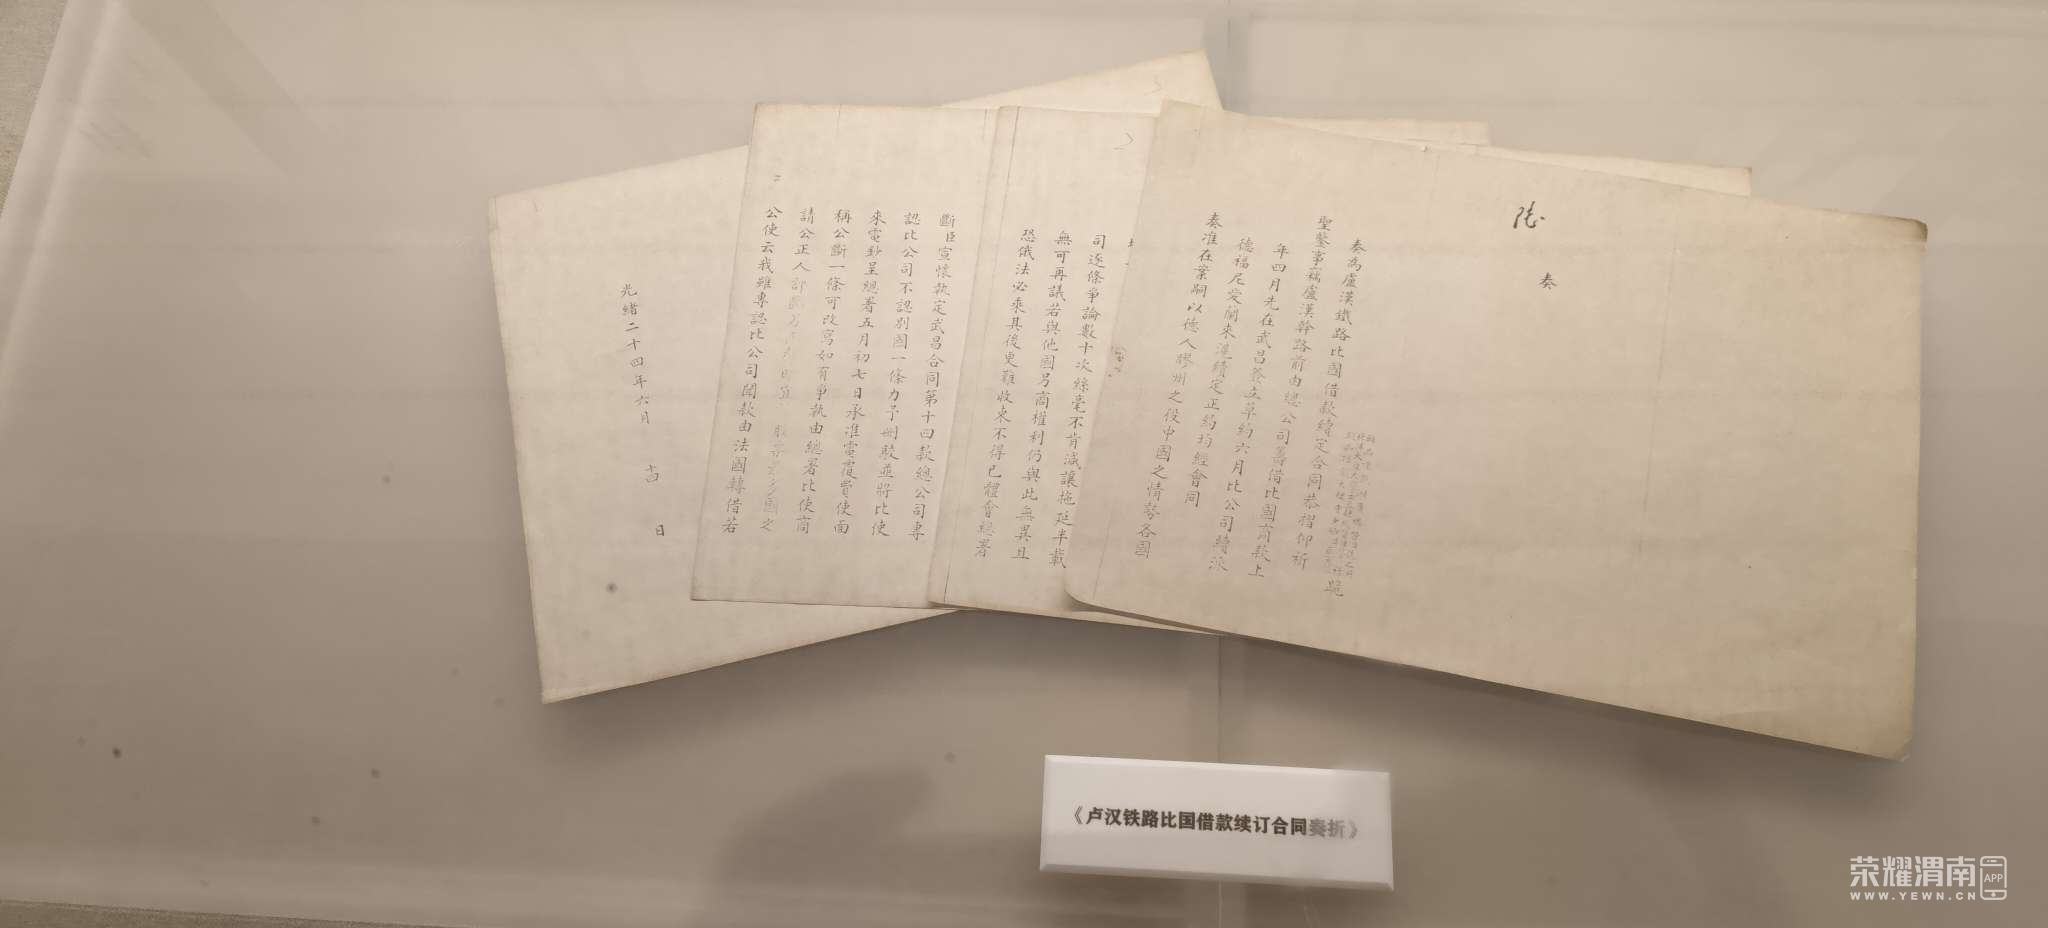 奏
奏為盧漢鐵路比國借款續定合同恭摺仰祈
聖鑒事竊盧漢幹路前由總公司籌借比國商款上
年四月先在武昌簽立草約六月比公司續派
德福尼愛蘭來滬續定正約均經會同
奏准在案嗣以德人膠州之役中國之情勢各國
司逐條爭論數十次絲毫不肯減讓拖延半載
無可再議若與他國另商權利仍與此無異且
恐俄法必乘其後更難收束不得已體會總署
斷臣宣懷執定武昌合同第十四款總公司專
認比公司不認別國一條力予刪駁並將比使
來電鈔呈總署五月初七日承准電覆費使面
稱公斷一條可改寫如有爭執由總署比使商
請公正人
公使云我雖專認比公司開款由法國轉借若
光緒二十四年六月 日
《卢汉铁路比国借款续订合同奏折》
荣耀渭南
APP
WWW.YEWN.CN